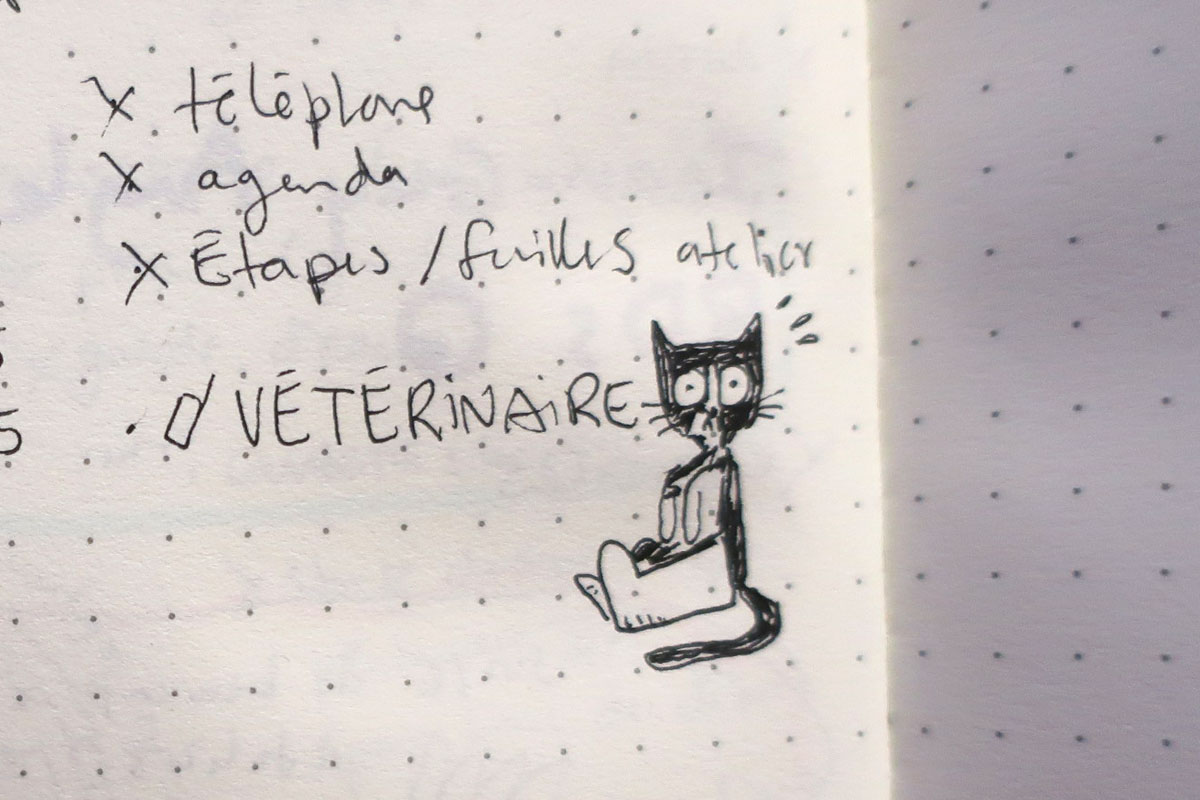 x téléphone
x agenda
x Étapes / feuilles atelier
. d VÉTÉRiNAiRE
5